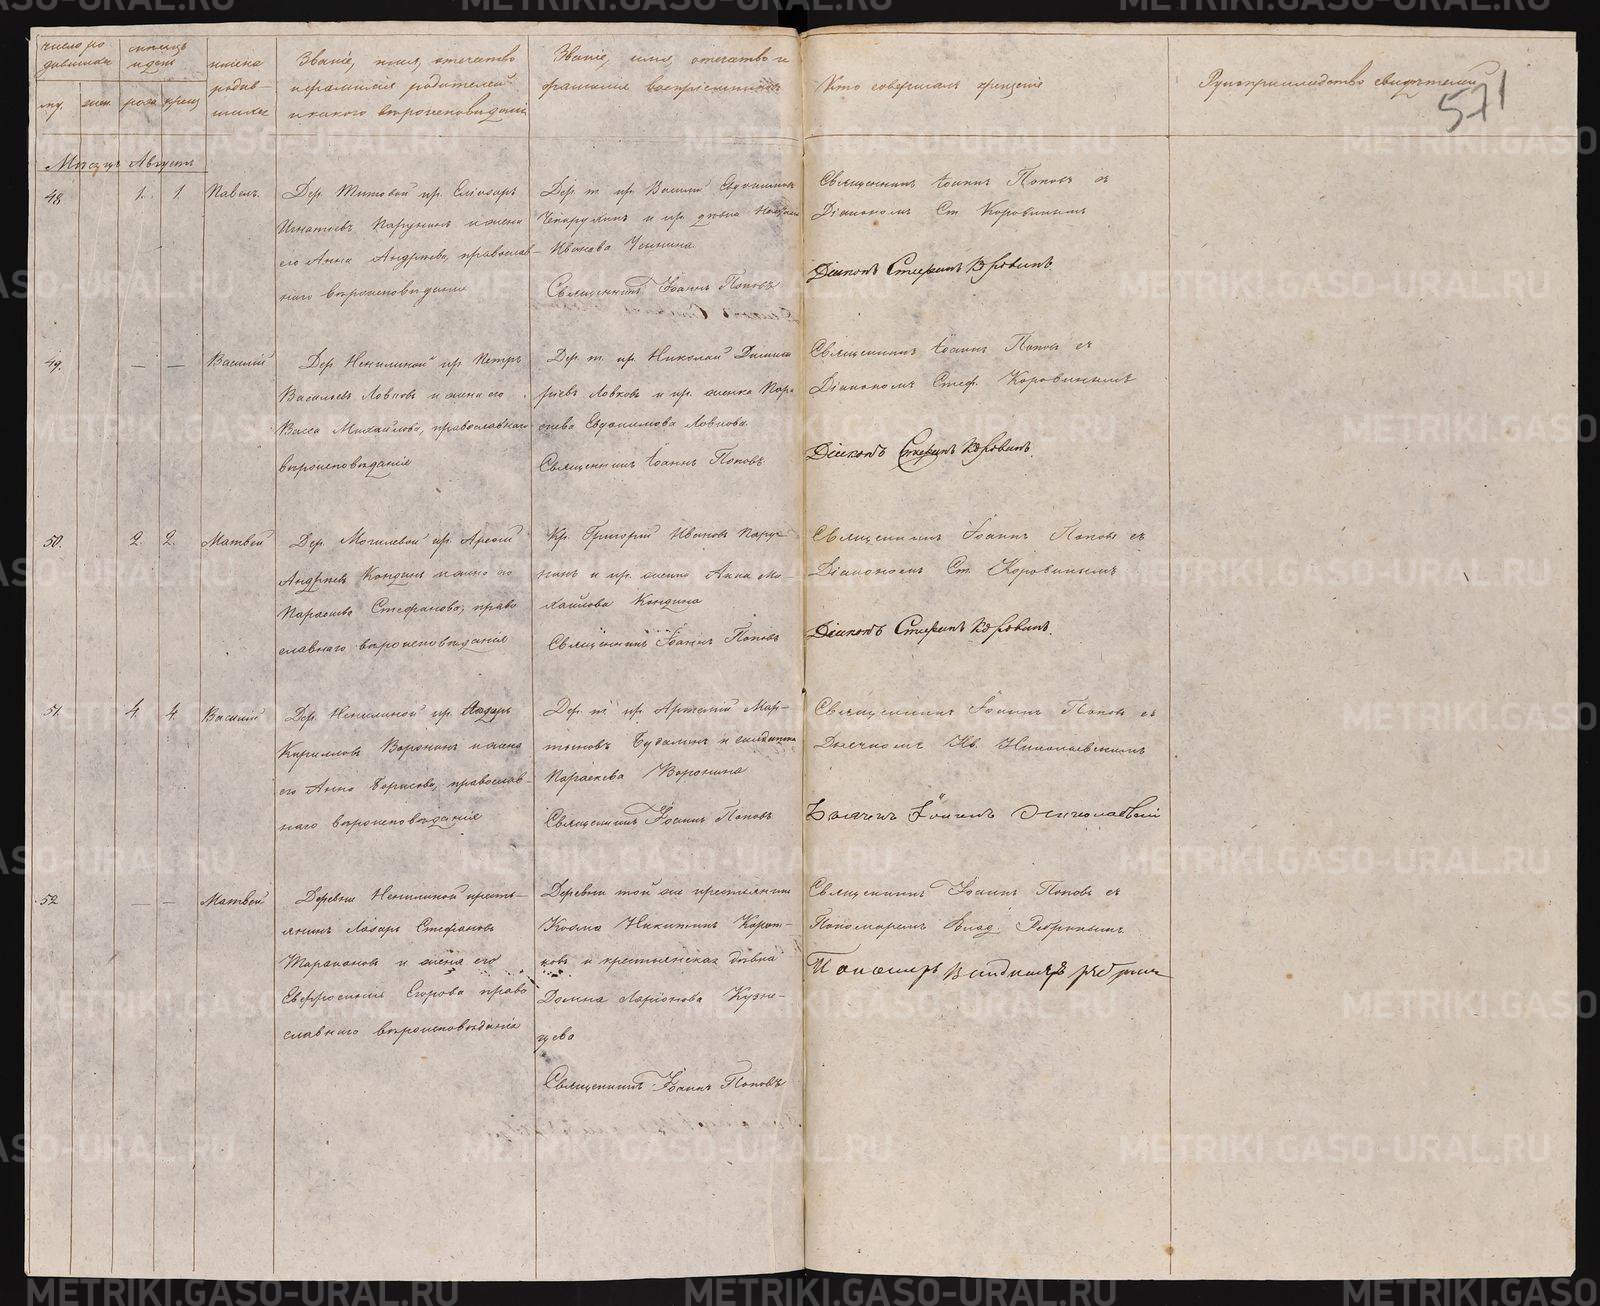 число родившихся
месяцъ и день
имена родившихся
Званіе, имя, отчество и фамилія родителей и какого вѣроисповѣданія
Званіе, имя, отчество и фамилія воспріемниковъ
Кто совершалъ крещеніе
Рукоприкладство свидѣтелей
571
му. жен. рожд. крещ.
Мѣсяцъ Августъ
48. 1. 1. Павелъ.
Дер. Титовой кр.
Игнатіевъ Паружинъ и жена
его Анна Андреева, православ-
наго вѣроисповѣданія
Дер. т. кр. Василій
и кр. дѣвка
Иванова
Священникъ Іоаннъ Поповъ
Священникъ Іоаннъ Поповъ съ
Діакономъ Ст. Коровинымъ
Діаконъ Стефанъ Коровинъ.
49. — — Василій
Дер. Ненилиной кр. Петръ
Васильевъ Ловковъ и жена его
Васса Михайлова, православнаго
вѣроисповѣданія
Дер. т. кр. Николай
Ловковъ и кр. женка Пара-
скева Евдокимова Ловкова
Священникъ Іоаннъ Поповъ
Священникъ Іоаннъ Поповъ съ
Діакономъ Стеф. Коровинымъ
Діаконъ Стефанъ Коровинъ.
50. 2. 2. Матвей
Дер. Могилевой кр.
Андреевъ Кондинъ и жена его
Параскева Стефанова, право
славнаго вѣроисповѣданія
Кр. Григорій Ивановъ Пару-
нинъ и кр. женка Анна Ми-
хайлова Кондина
Священникъ Іоаннъ Поповъ
Священникъ Іоаннъ Поповъ съ
Діакономъ Ст. Коровинымъ
Діаконъ Стефанъ Коровинъ.
51. 4. 4. Василій
Дер. Ненилиной кр.
Кирилловъ Воронинъ и жена
его Анна Борисова, православ-
наго вѣроисповѣданія
Дер. т. кр. Артемій Мар-
тыновъ и солдатка
Параскева Воронина
Священникъ Іоаннъ Поповъ
Священникъ Іоаннъ Поповъ съ
Дьячкомъ Ив. Николаевскимъ
Дьячекъ Іоаннъ Николаевскій
52 — — Матвей
Деревни Ненилиной кресть-
янинъ Лазарь Стефановъ
Таракановъ и жена его
Евфросинія Егорова право
славнаго вѣроисповѣданія
Деревни той же крестьянинъ
Козма Никитинъ Корот-
ковъ и крестьянская дѣвка
Домна Ларіонова Кузне-
цова
Священникъ Іоаннъ Поповъ
Священникъ Іоаннъ Поповъ съ
Пономаремъ Влад. Ребринымъ
Пономарь Владиміръ Ребринъ
METRIKI.GASO-URAL.RU